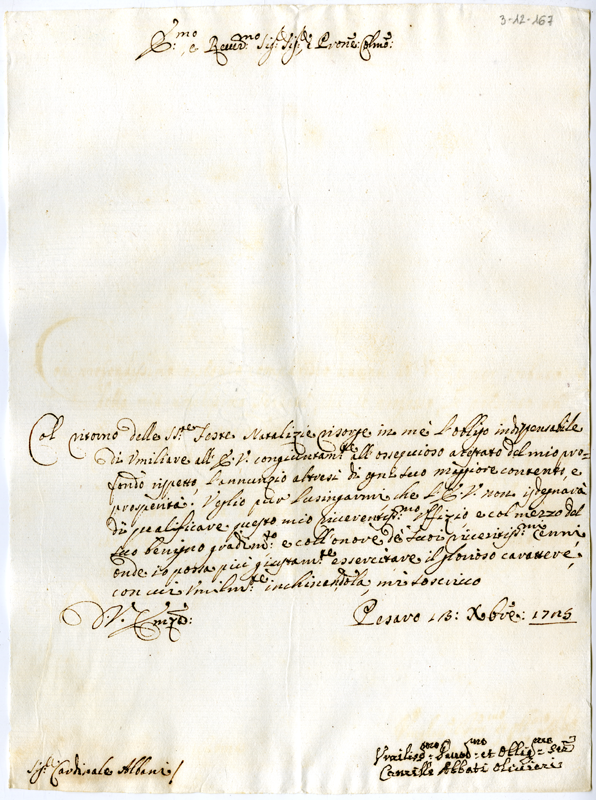 3-12-167
E.mo, e Reuer.mo Sig.r Sig.r e Prone: Colmo:
Col ritorno delle S.te Feste Natalizie risorge in me l'obligo indispensabile
di vmiliare all'E.V. congiuntam.te all'ossequioso attestato del mio pro=
fondo rispetto l'annunzio altresì di ogni suo maggiore contento, e
prosperità. Voglio pur lusingarmi che l'E.V. non isdegnarà
di qualificare questo mio riuerentiss.mo Vffizio e col mezzo del
suo benigno gradim.to e coll'onore de suoi riueritiss.mi cenni
onde io possa più giustam.te essercitare il glorioso carattere,
con cui vmilm.te inchinandola, mi soscriuo
D.V. Em.za:
Pesaro 13: Xbre: 1725
Sig.r Cardinale Albani/
Vmiliss.mo Deuod.mo et Obblig.mo Ser.
Camillo Abbati Oliuieri